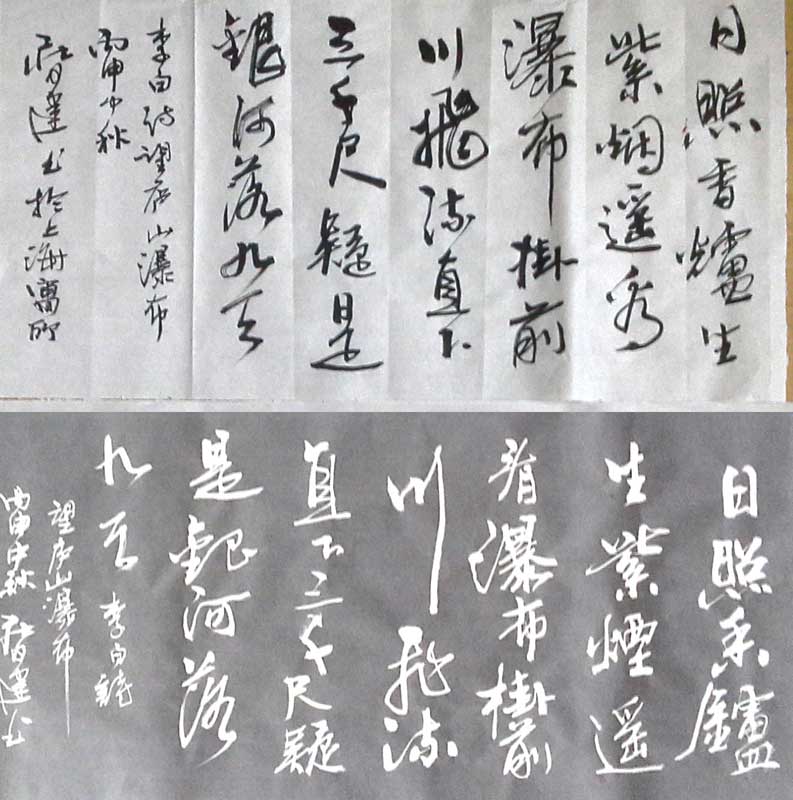 日照香爐生
紫烟遥看
瀑布掛前
川飛流直下
三千尺疑是
銀河落九天
李白诗望庐山瀑布
丙申中秋
達书於上海寓所
日照香鑪
生紫煙遥
看瀑布掛前
川飛流
直下三千尺疑
是銀河落
九天 李白詩
望庐山瀑布
丙申中秋 達书